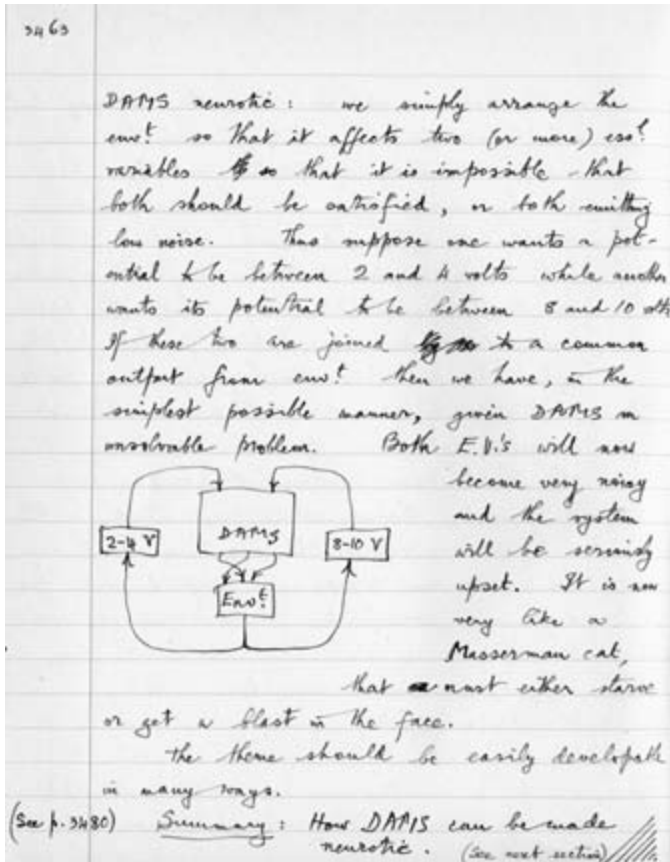 3463
DAMS neurotic : we simply arrange the
envt. so that it affects two (or more) essl.
variables so that it is impossible that
both should be satisfied, or both emitting
low noise. Thus suppose one wants a pot-
ential to be between 2 and 4 volts while another
wants its potential to be between 8 and 10 volts
If these two are joined to a common
output from envt. then we have, in the
simplest possible manner, given DAMS an
unsolvable problem. Both E.V.'s will now
become very noisy
and the system
will be seriously
upset. It is now
very like a
Masserman cat,
that must either starve
or get a blast in the face.
2-4 V
DAMS
8-10 V
Envt.
The theme should be easily developable
in many ways.
(See p. 3480) Summary : How DAMS can be made
neurotic. (See next section)